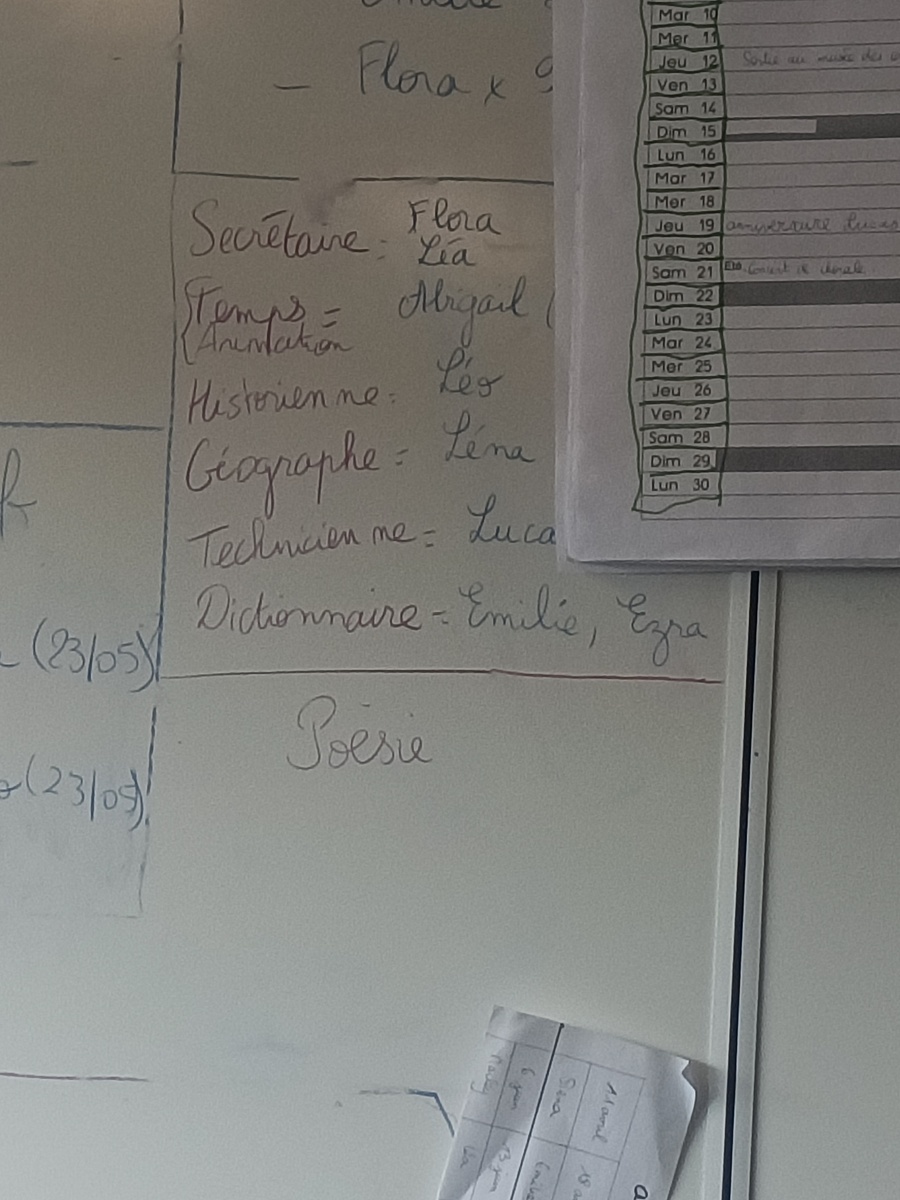 - Flora x
Secrétaire : Flora
Léa
Temps = Abigail (
Animation
Historienne : Léo
Géographe = Léna
Technicienne = Luca
Dictionnaire = Emilie, Ezra
(23/05)
Poésie
(23/05)
Mar 10
Mer 11
Jeu 12 Sortie au musée des
Ven 13
Sam 14
Dim 15
Lun 16
Mar 17
Mer 18
Jeu 19 anniversaire Lucas
Ven 20
Sam 21 Eté Concert de chorale
Dim 22
Lun 23
Mar 24
Mer 25
Jeu 26
Ven 27
Sam 28
Dim 29
Lun 30
6 juin
13 juin